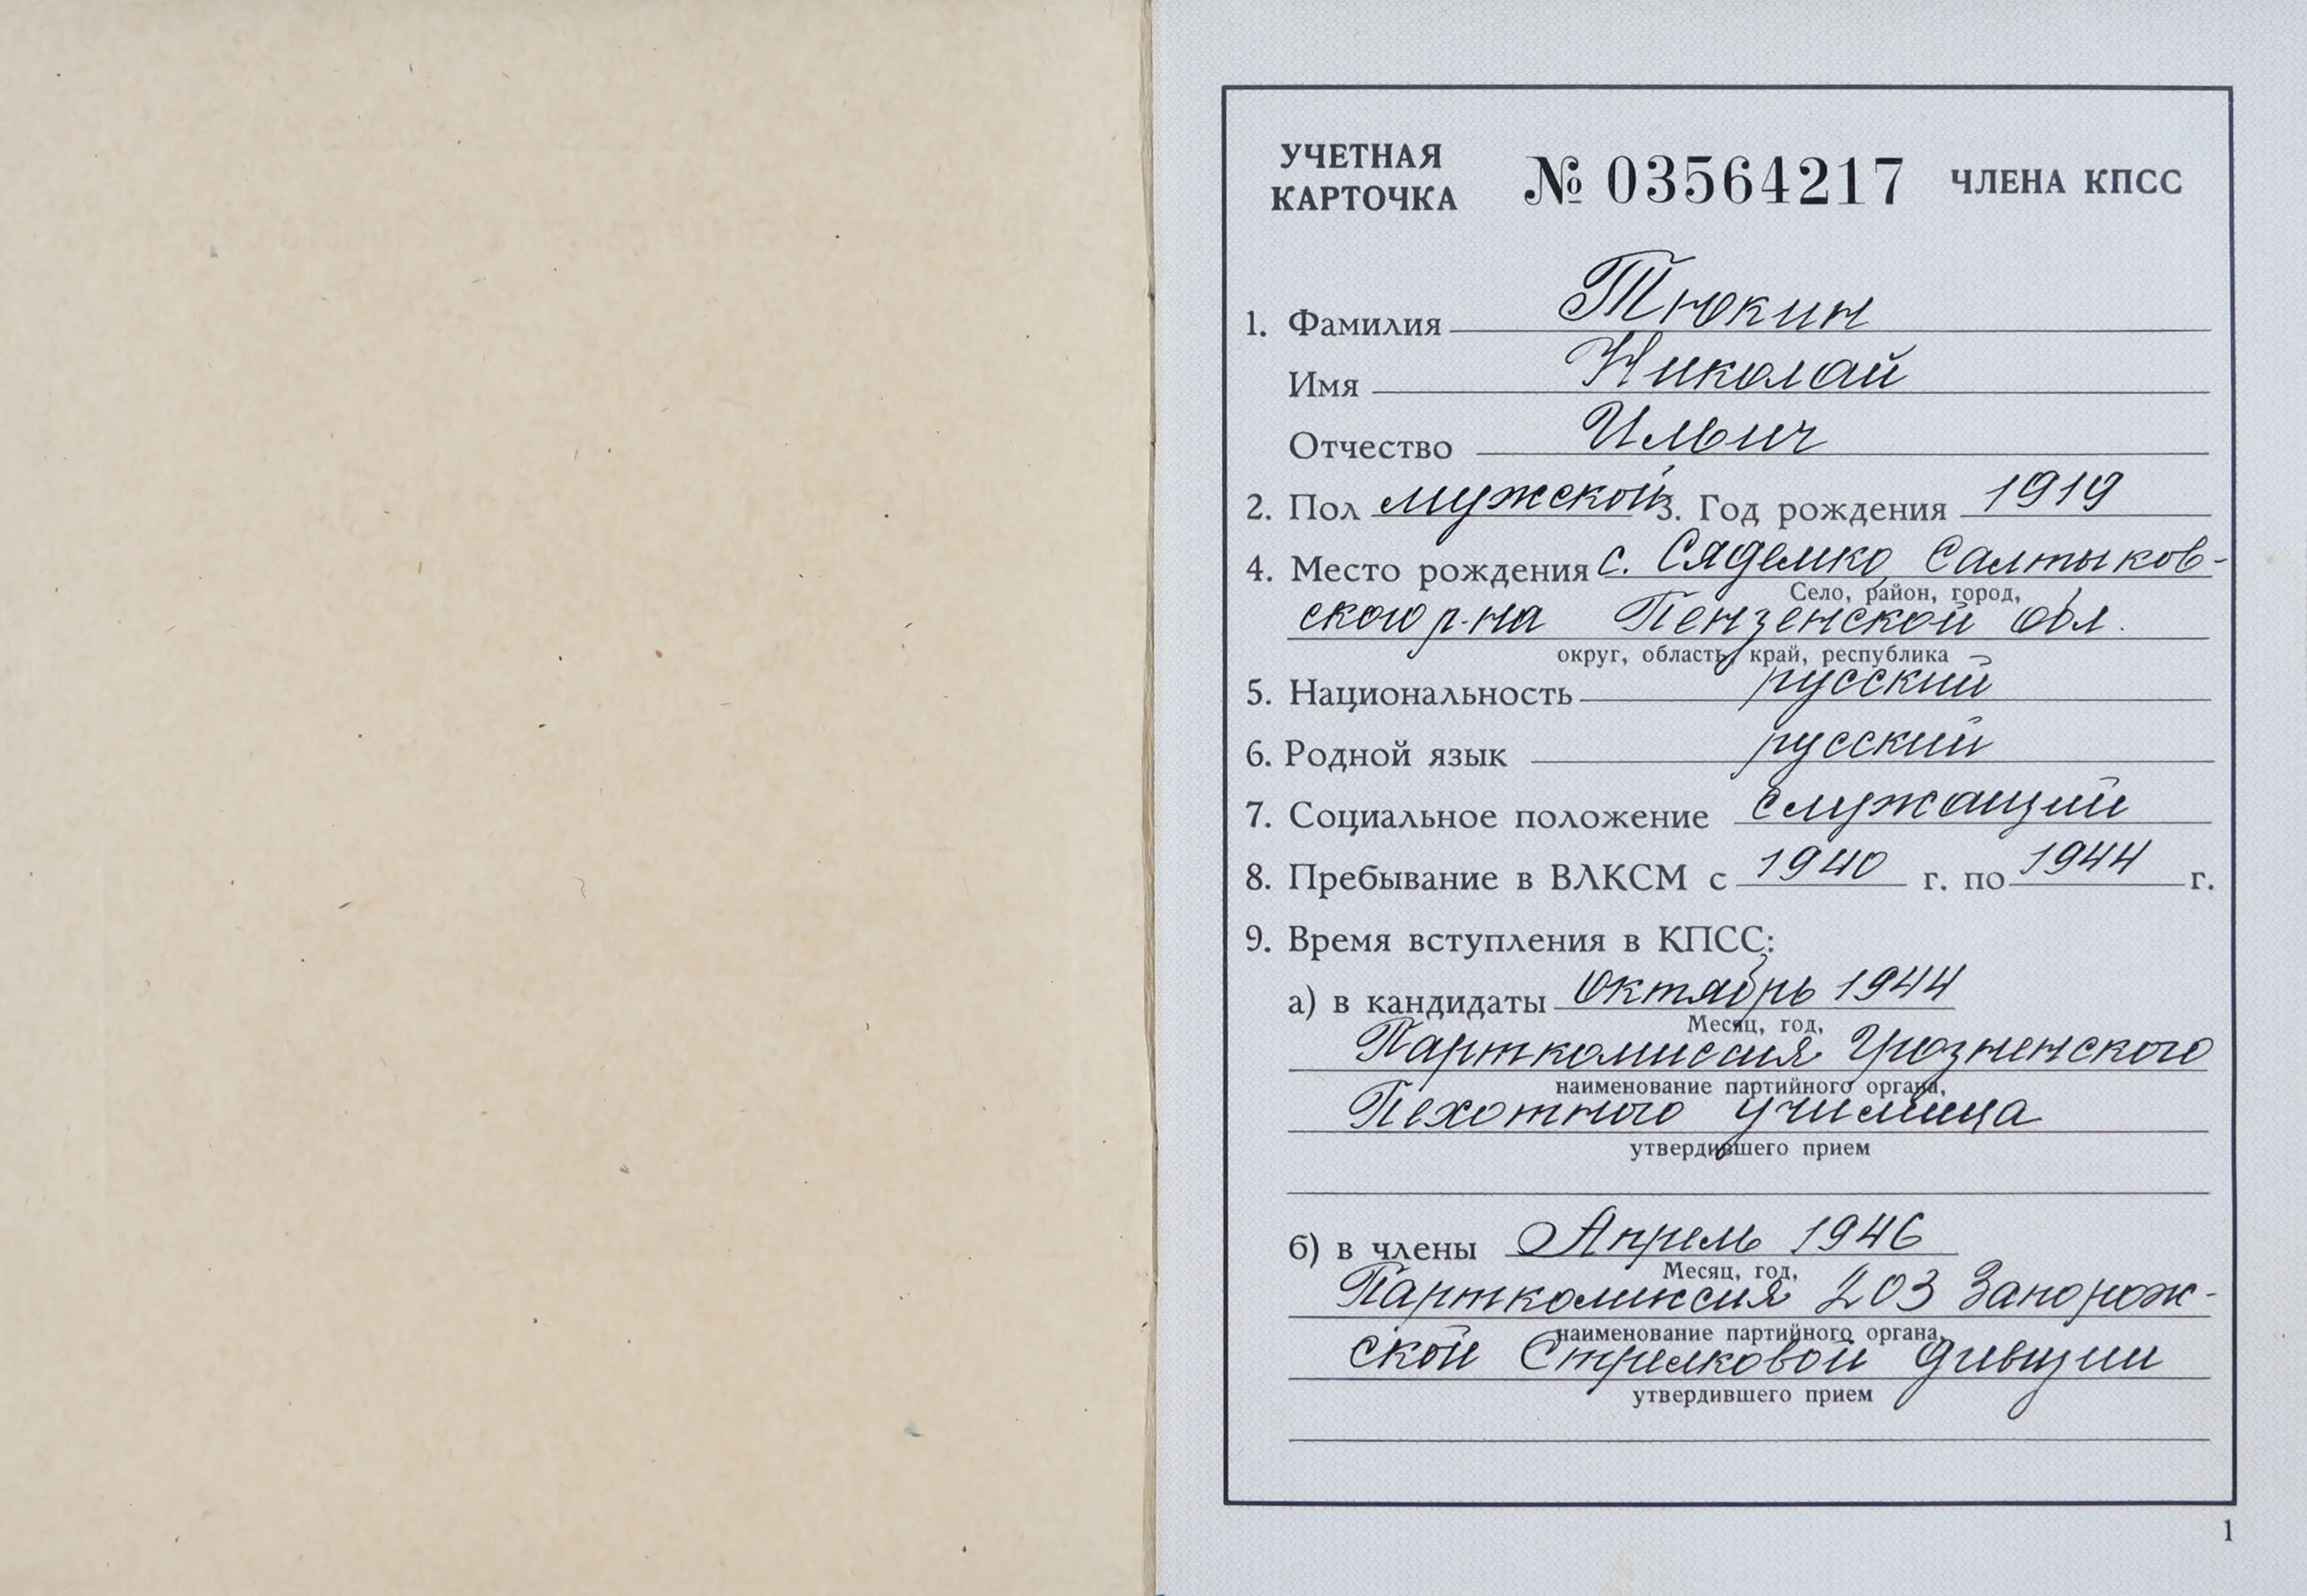 УЧЕТНАЯ КАРТОЧКА № 03564217 ЧЛЕНА КПСС
1. Фамилия Тюкин
Имя Николай
Отчество Ильич
2. Пол мужской 3. Год рождения 1919
4. Место рождения с. Сядемко, Салтыков-
Село, район, город,
ского р-на Пензенской обл.
округ, область, край, республика
5. Национальность русский
6. Родной язык русский
7. Социальное положение служащий
8. Пребывание в ВЛКСМ с 1940 г. по 1944 г.
9. Время вступления в КПСС:
а) в кандидаты Октябрь 1944
Месяц, год,
Парткомиссия Грозненского
наименование партийного органа,
Пехотного училища
утвердившего прием
б) в члены Апрель 1946
Месяц, год,
Парткомиссия 203 Запорож-
наименование партийного органа,
ской Стрелковой дивизии
утвердившего прием
1